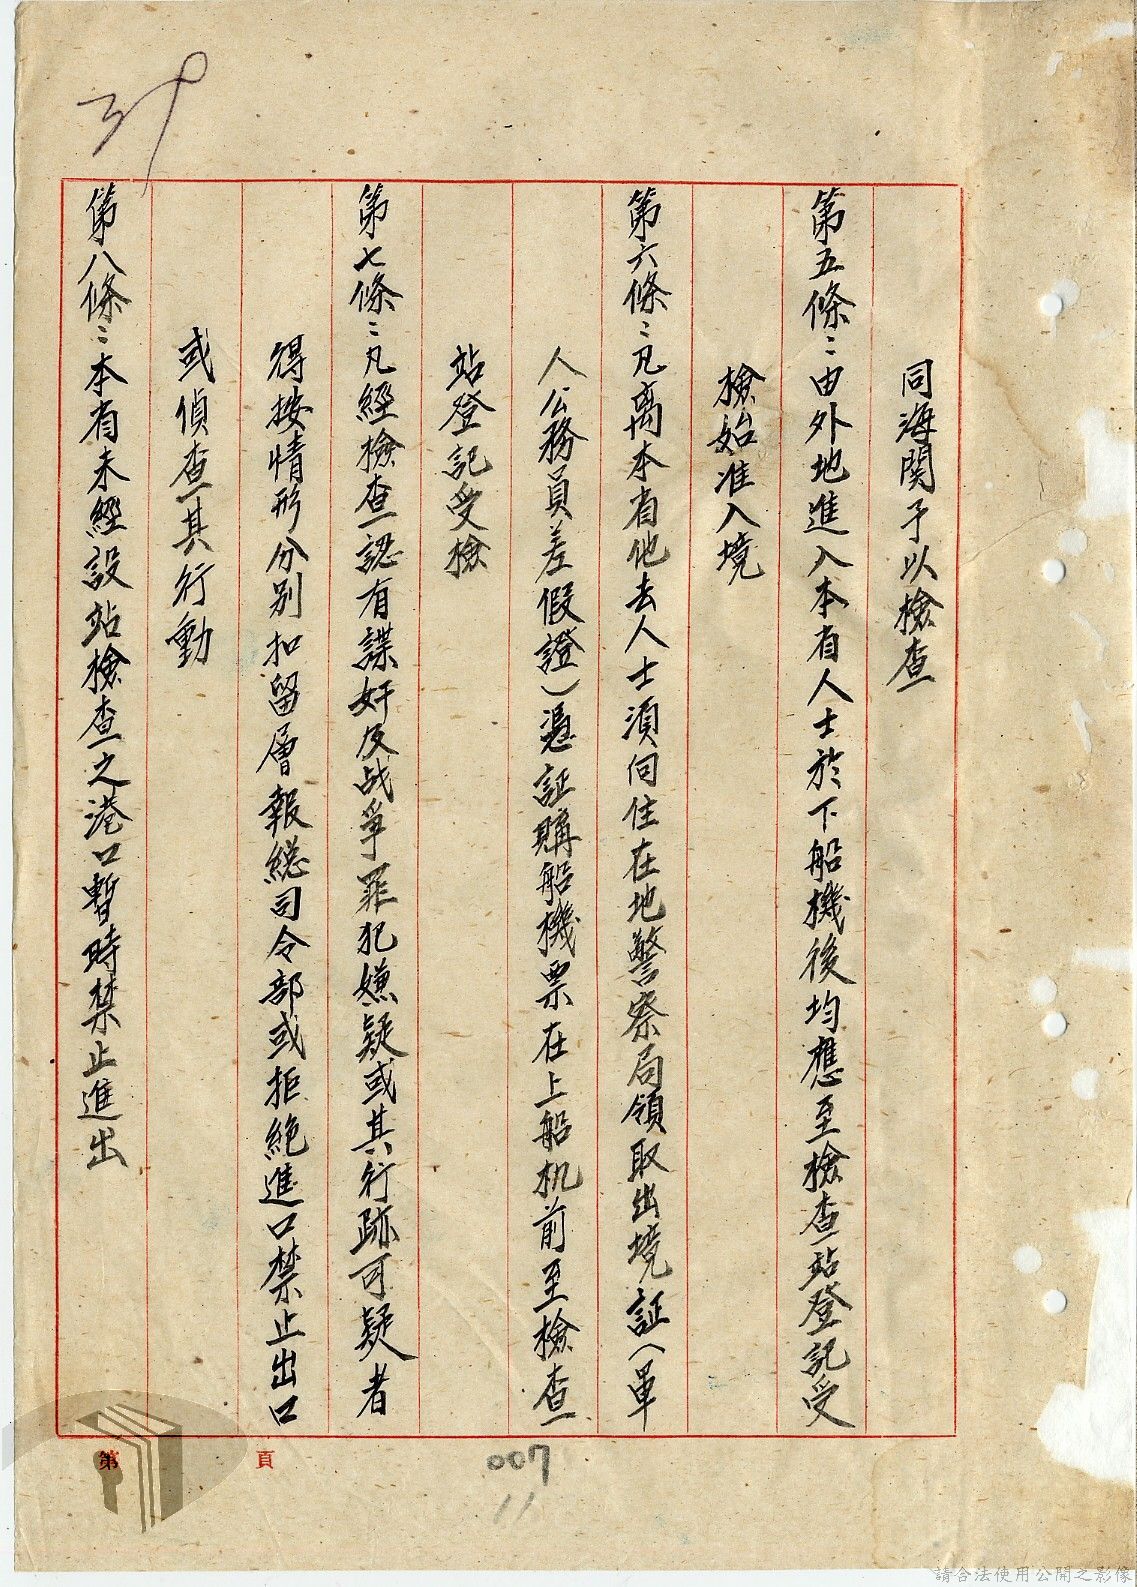 同海関予以檢查
第五條：由外地進入本省人士於下船機後均應至檢查站登記受
檢始准入境
第六條：凡离本省他去人士須向住在地警察局領取出境証（單
人公務員差假證）憑証購船機票在上船机前至檢查
站登記受檢
第七條：凡經檢查認有諜奸反战爭罪犯嫌疑或其行跡可疑者
得按情形分別扣留層報総司令部或拒絶進口禁止出口
或偵查其行動
第八條：本省未經設站檢查之港口暫時禁止進出
第 頁
007
11
請合法使用公開之影像